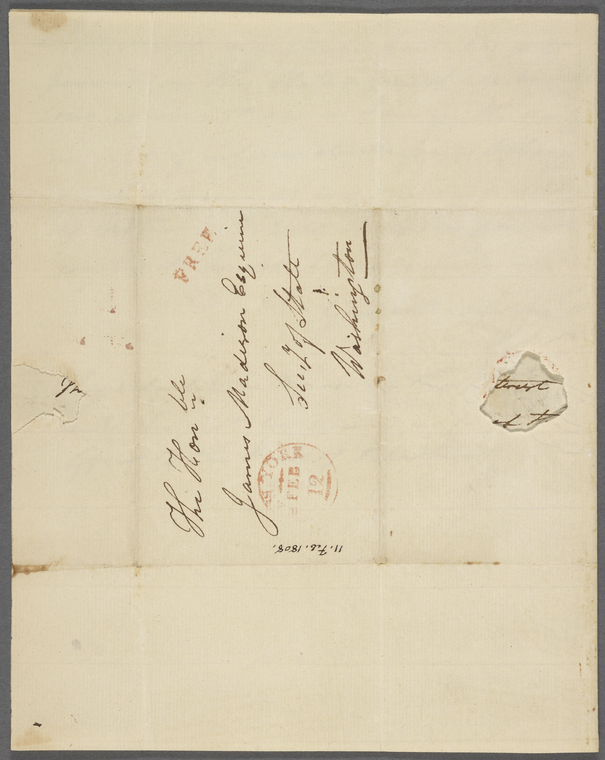 FREE
The Honble
James Madison Esquire
Secy of State
Washington
YORK
FEB
12
11. Feb. 1808.
terest
of t